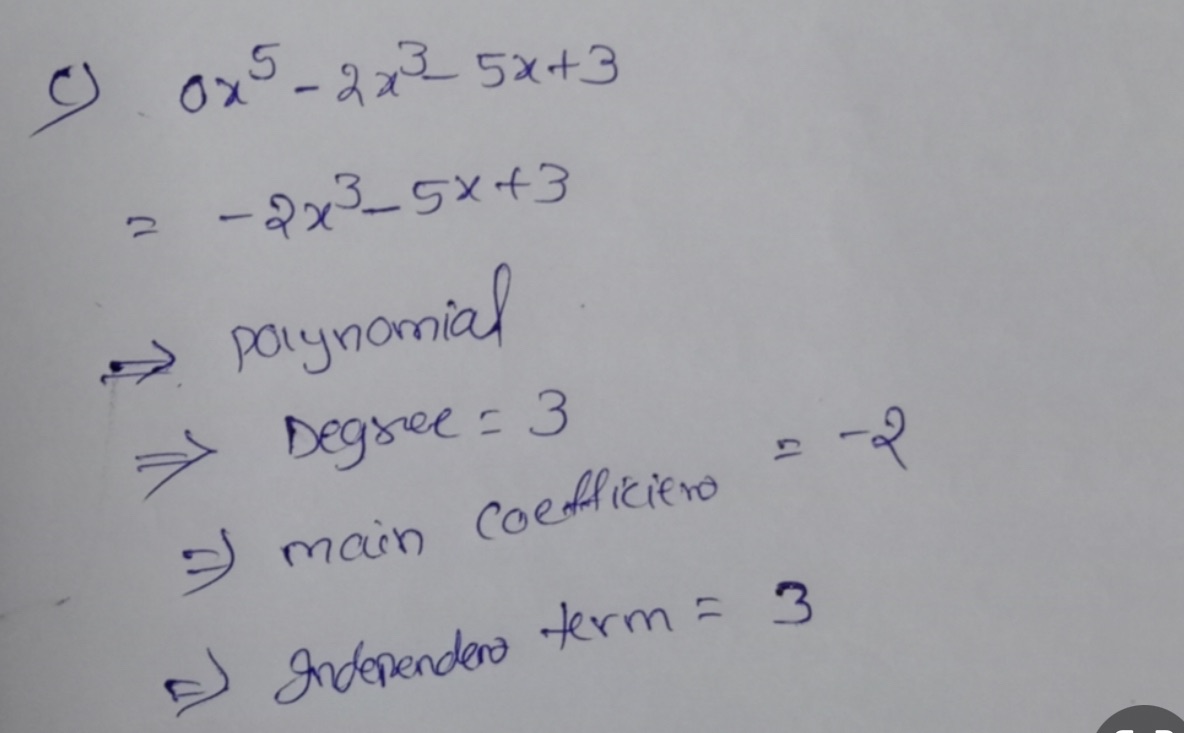 c) 0x⁵ - 2x³ - 5x + 3
= -2x³ - 5x + 3
⇒ Polynomial
⇒ Degree = 3
⇒ main coefficient = -2
⇒ Independent term = 3